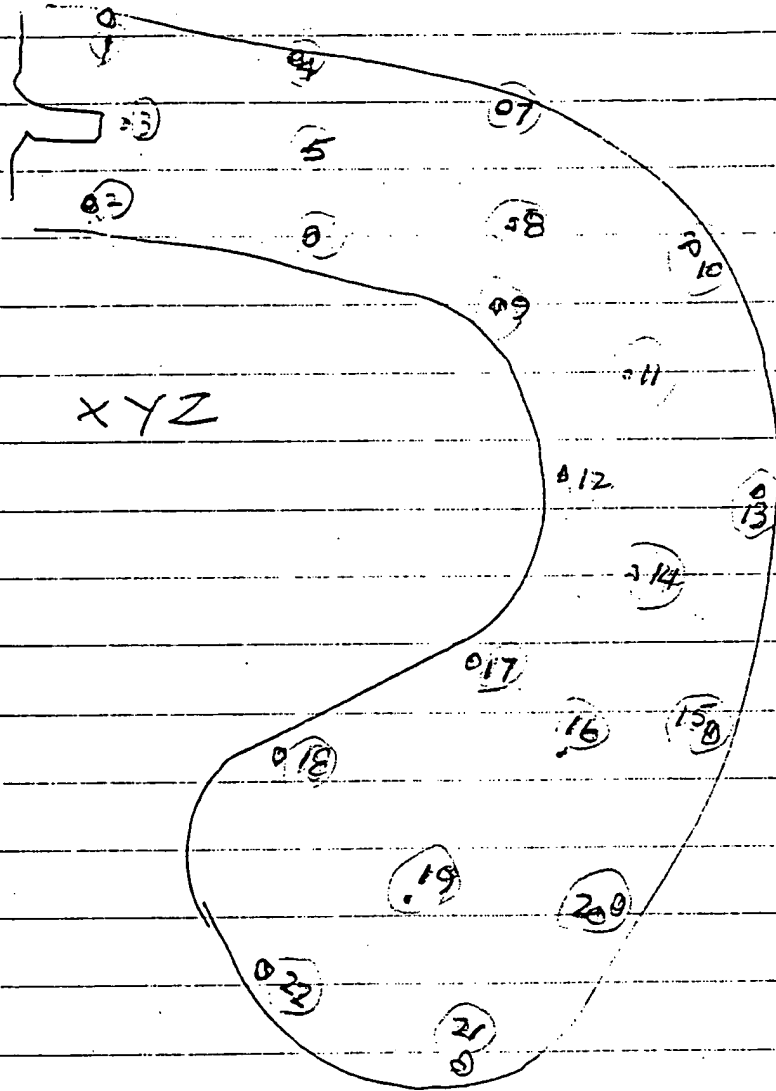 1
4
3
7
5
2
8
10
9
11
XYZ
12
13
14
17
15
16
18
19
20
22
21